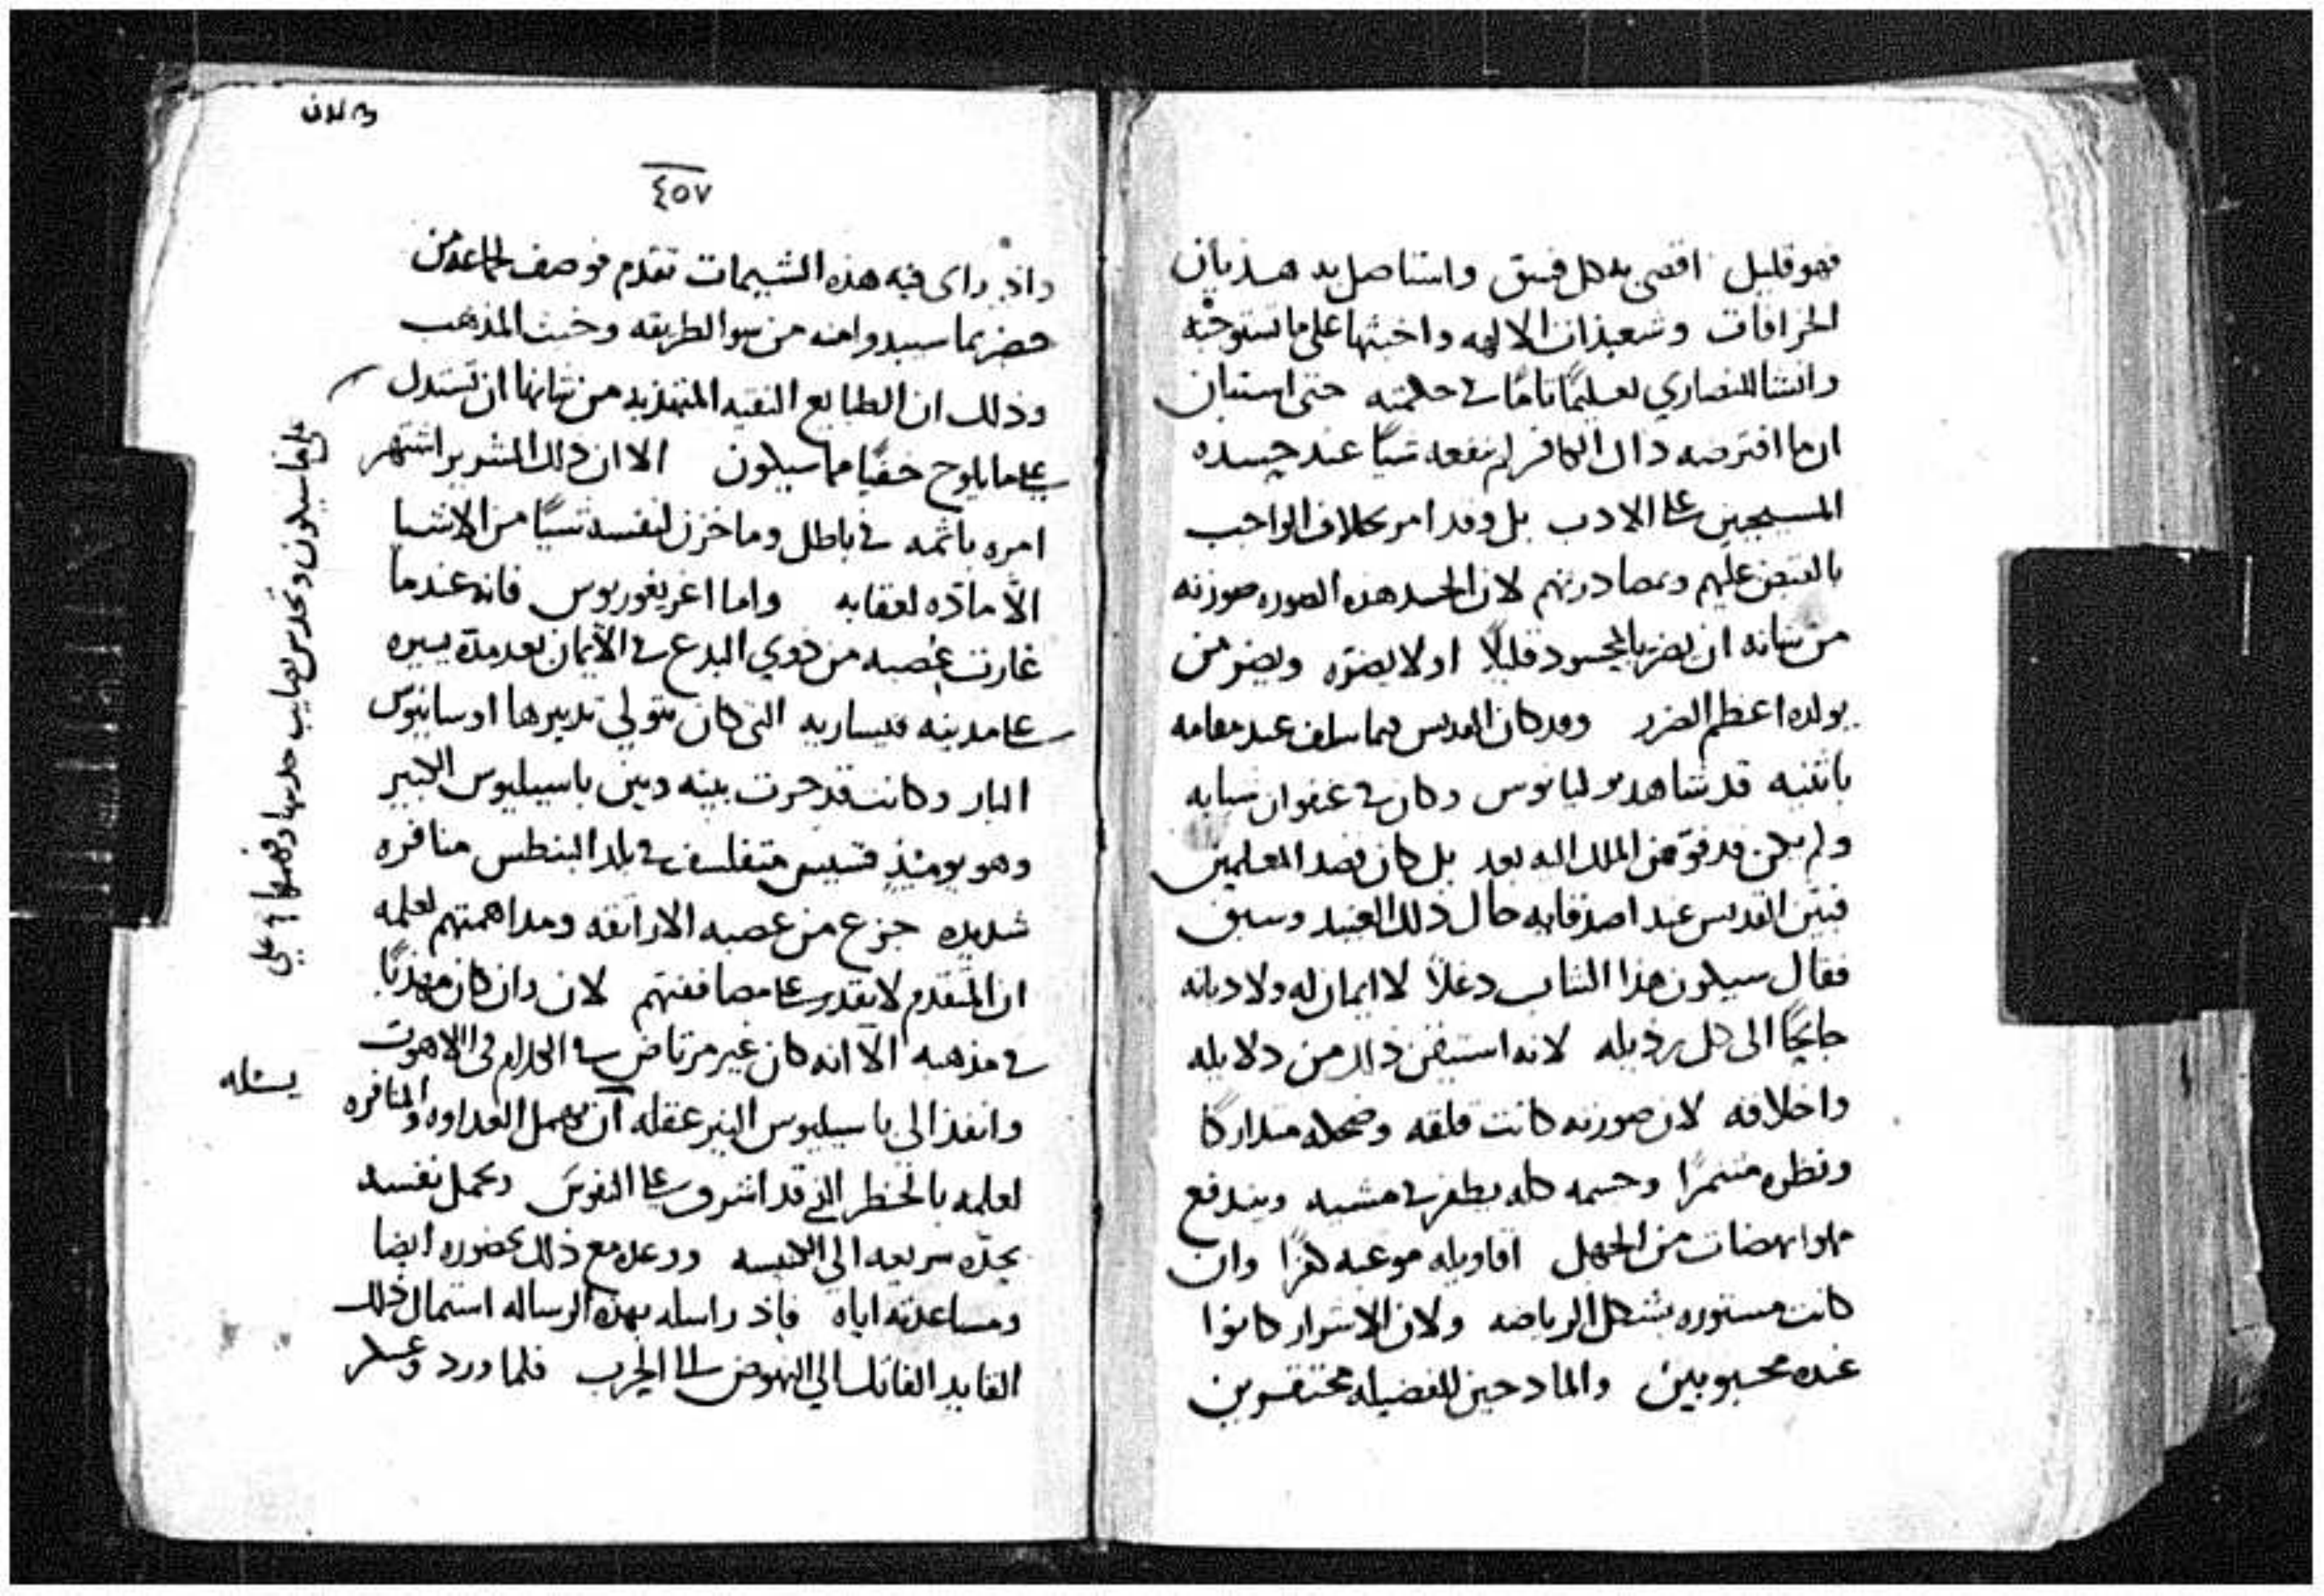 فهو قليل اقصى به كل فسق واستاصل به هذيان
الخرافات وشعبذات الالهه واخبثها على ما تستوجبه
وانشا للنصاري تعليمًا تامًا في حكمته حتى استبان
ان ما افترضه ذاك الكافر لم ينفعه شيًا عند حسده
المسيحيين على الادب بل وقد امر بخلاف الواجب
بالقبض عليهم وبمصادرتهم لان الحسد هذه الصوره صورته
من شانه ان يضر بالمحسود قليلًا اولا يضرّه ويضر من
يولده اعظم الضرر وقد كان القديس فيما سلف عند مقامه
باثنيه قد شاهد يوليانوس وكان في عنفوان شبابه
ولم يكن قد فوّض الملك اليه بعد بل كان يقصد المعلمين
فبين القديس عند اصدقايه حال ذلك العنيد وسبق
فقال سيكون هذا الشاب دغلًا لا ايمان له ولا ديانه
جانحًا الى كل رذيله لانه استيقن ذلك من دلايله
واخلاقه لان صورته كانت قلقه وضحكه متداركًا
ونظره متنمرًا وجسمه كله يطفر في مشيه ويندفع
من الجهل اقاويله موعبه هزًا وان
كانت مستوره بشكل الرياضه ولان الاشرار كانوا
عنده محبوبين والمادحين للفضيله محتقرين
في الثاني
٤٥٧
واذ راى فيه هذه الشيمات تقدم فوصف لجماعه من
حضر بما سيبدوا منه من سوا الطريقه وخبث المذهب
وذلك ان الطبايع النقيه المتهذبه من شانها ان تستدل
على ما يلوح خفيًا مما سيكون الا ان ذلك الشرير اشتهر
امره باثمه في باطل وما خزن لنفسه شيًا من الاشيا
الّا مادّه لعقابه واما اغريغوريوس فانه عندما
غارت عصبه من ذوي البدع في الايمان بعد مدة يسيره
على مدينه قيساريه التي كان يتولي تدبيرها اوسابيوس
البار وكانت قد جرت بينه وبين باسيليوس الكبير
وهو يوميذٍ قسيس متفلسف في بلد البنطس منافره
شديده جزع من عصبه الاراتقه ومداهمتهم لعلمه
ان المتقدم لا يقدر على مصاففتهم لان وان كان مهذبًا
في مذهبه الّا انه كان غير مرتاض في الكلام في اللاهوت
وانفذ الى باسيليوس النير عقله ان يهمل العداوه والمنافره
لعلمه بالخطر الذي قد اشرف على النفوس ويحمل نفسه
بجدّه سريعه الي الكنيسه ووعده مع ذلك بحضوره ايضا
ومساعدته اياه فاذ راسله بهذه الرساله استمال ذلك
القايد الفاتك الي النهوض الى الحرب فلما ورد وعسكر
على ما سيكون وتحدس بصايب حدسها وفهمها في علي
يسئله